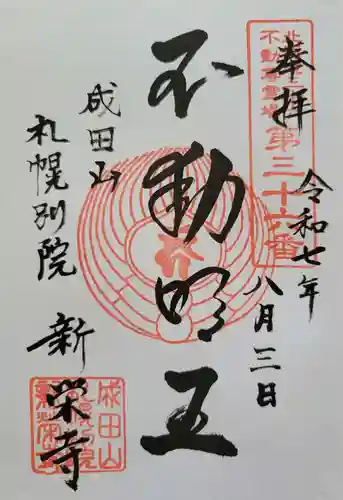 奉拝
北海道
不動尊霊場
第三十六番
令和七年
八月三日
不動明王
成田山
札幌別院
新栄寺
成田山